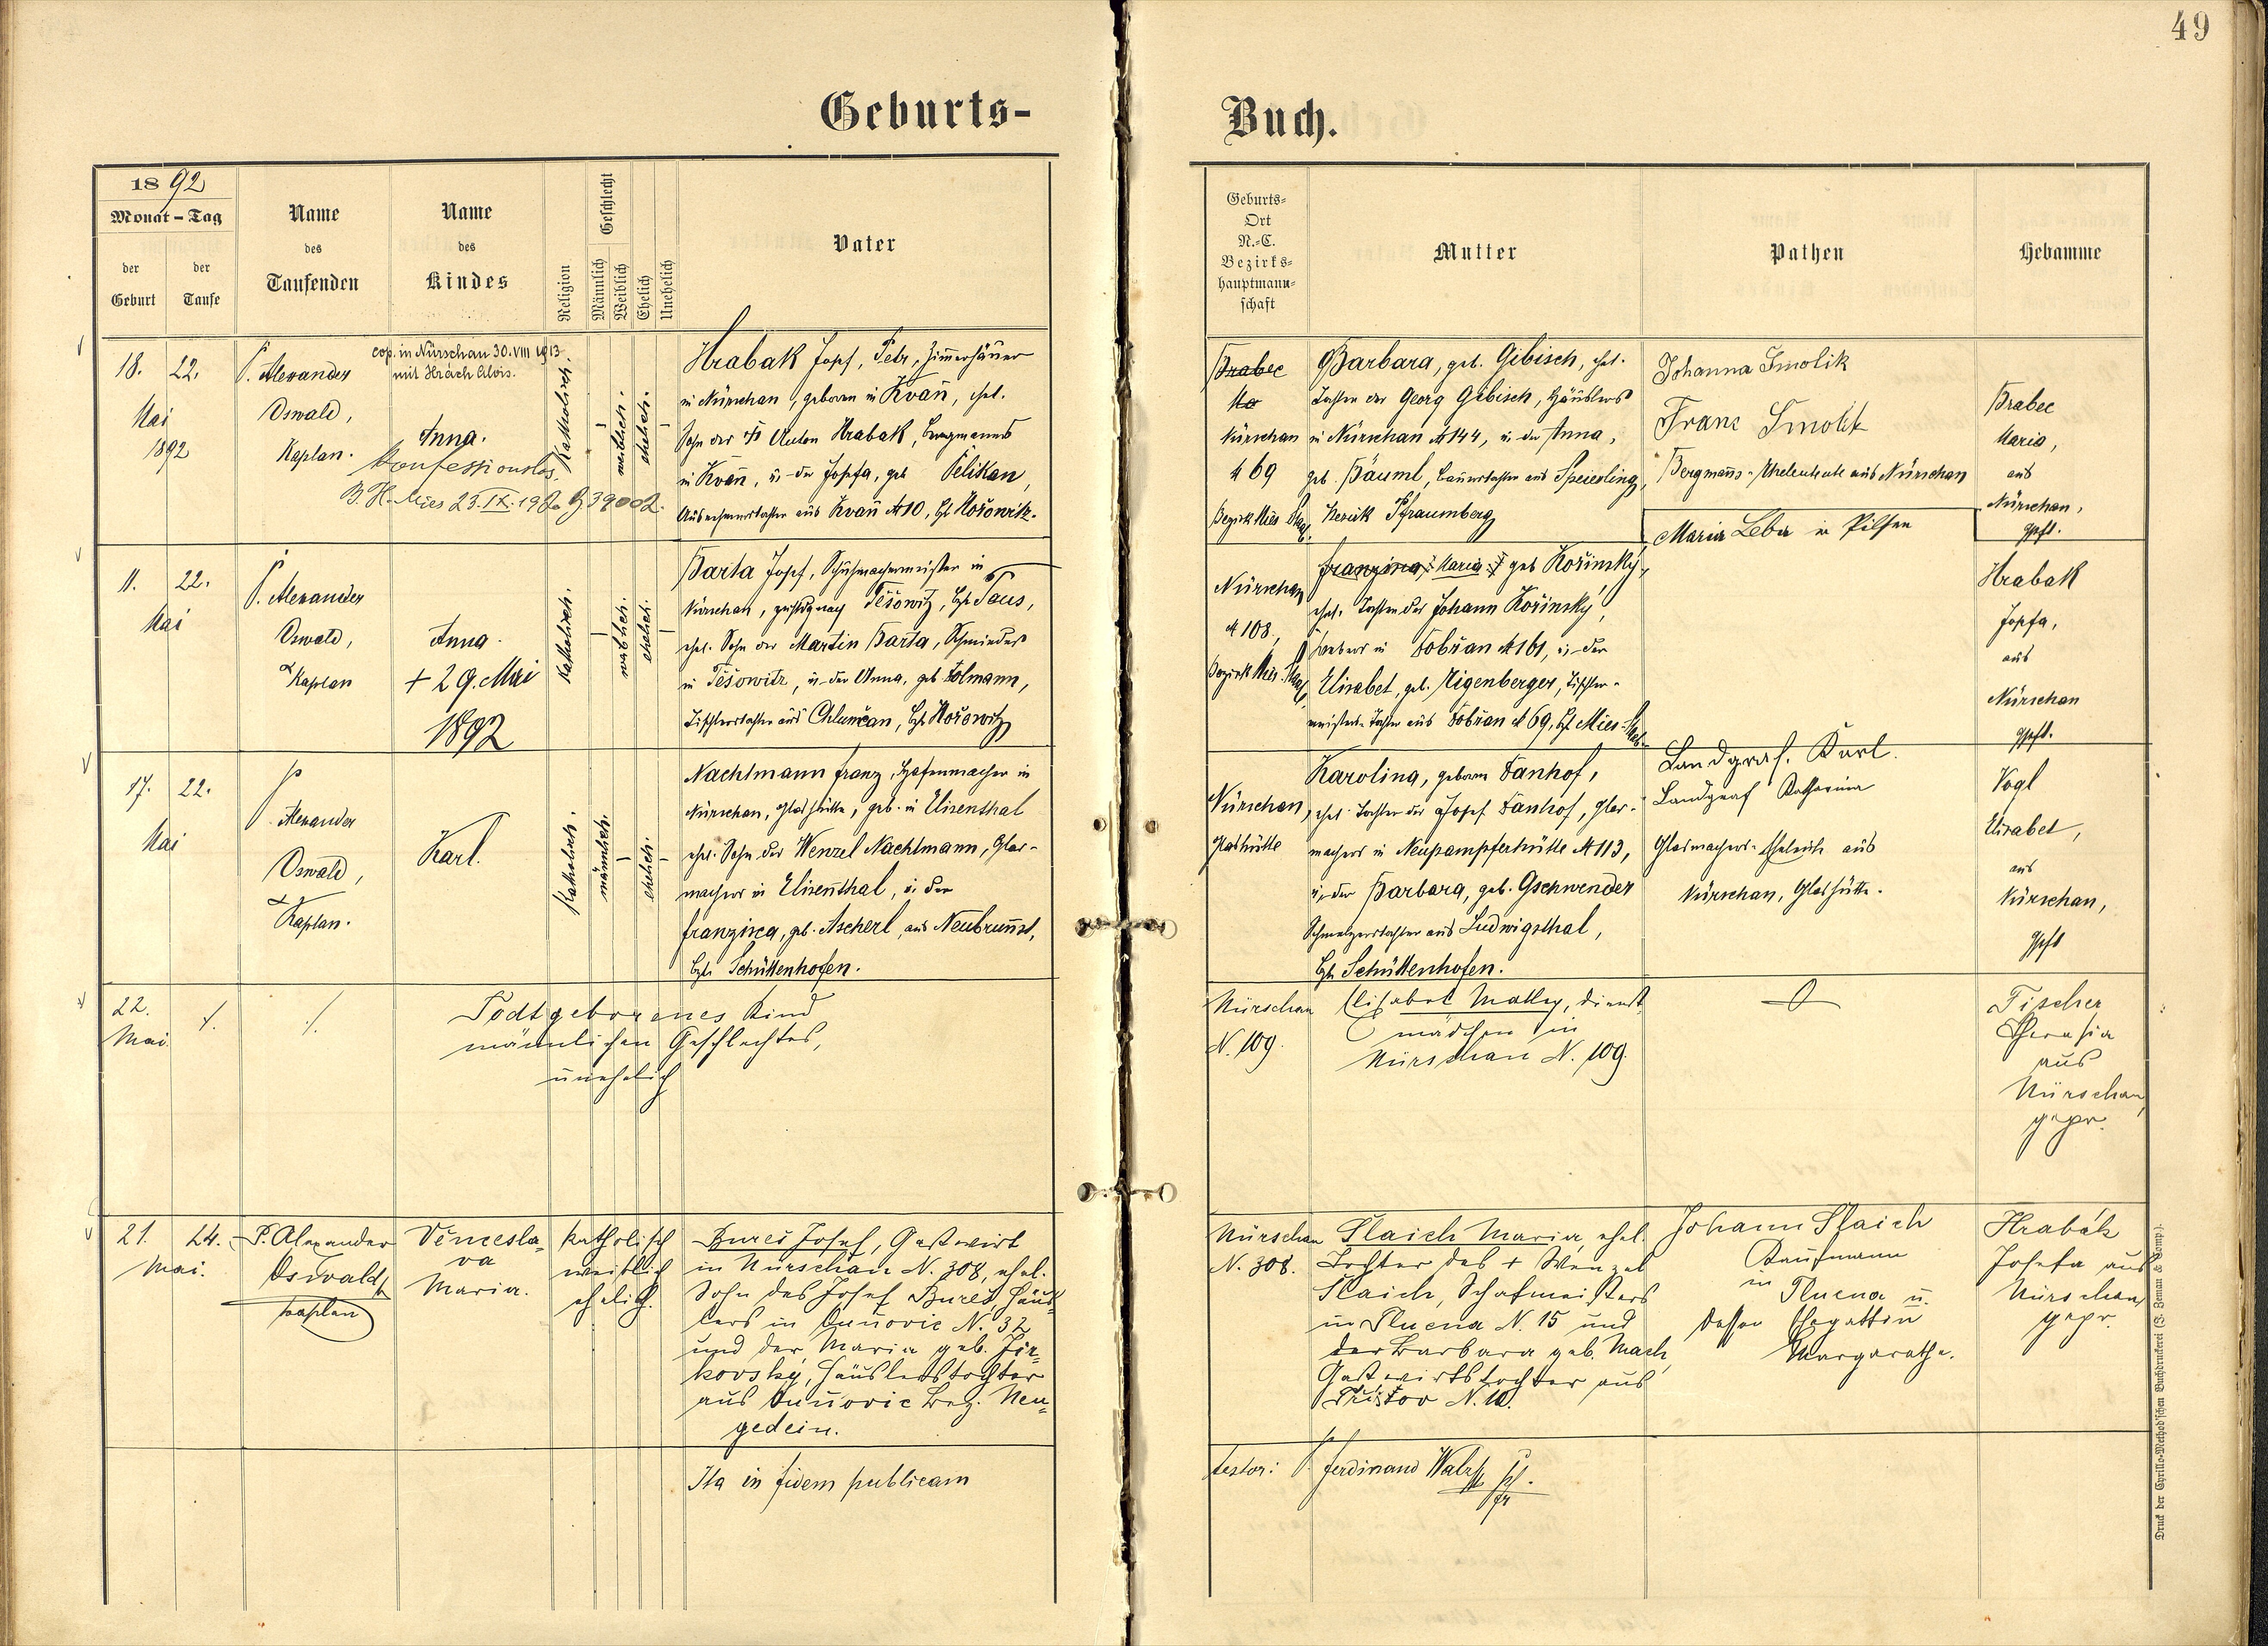 49
Geburts-
Buch.
1892
Monat - Tag
der Geburt
der Taufe
Name des Taufenden
Name des Kindes
Religion
Geschlecht
Männlich
Weiblich
Ehelich
Unehelich
Vater
Geburts-
Ort
N.-C.
Bezirks-
hauptmann-
schaft
Mutter
Pathen
Hebamme
18. 22.
Mai
1892
P. Alexander
Oswald,
Kaplan.
cop. in Nürschan 30. VIII 1913
mit Hrách Alois.
Anna.
Konfessionslos
B. H. Mies 23. IX.
Katholisch.
weiblich.
ehelich.
Hrabak Josef, Petr, Zimmerhäuer
in Nürschan, geboren in Kvaň, ehel.
Sohn des Anton Hrabak, Bergmanns
in Kvaň, u. der Josefa, geb. Pelikan,
aus Kvaň № 10, Bz. Hořowitz.
Brabec
Ma
Nürschan
№ 69
Bezirk Mies
Barbara, geb. Gibisch, ehel.
Tochter des Georg Gibisch, Häuslers
in Nürschan № 144, u. der Anna,
geb. Bäuml, Bauerstochter aus Speierling,
Bezirk Pfraumberg
Johanna Smolik
Franz Smolik
Bergmanns-Eheleute aus Nürschan
Brabec
Maria,
aus
Nürschan,
gpft.
11. 22.
Mai
P. Alexander
Oswald,
Kaplan
Anna.
+ 29. Mai
1892
Katholisch.
weiblich.
ehelich.
Barta Josef, Schuhmachermeister in
Nürschan, zuständig nach Těšowitz, Bzk Taus,
ehel. Sohn des Martin Barta, Schmiedes
in Těšowitz, u. der Anna, geb. Tolmann,
Tischlerstochter aus Chlumčan, Bzk Hořowitz
Nürschan
№ 108,
Bezirk Mies
Franzisca, Maria geb. Kořinsky,
ehel. Tochter des Johann Kořinský,
Webers in Dobřan № 161, u. der
Elisabet, geb. Eigenberger, Tischler-
meisters-Tochter aus Dobřan № 69, Bz. Mies
Maria Leba in Pilsen
Hrabak
Josefa,
aus
Nürschan
gpft.
17. 22.
Mai
P. Alexander
Oswald,
Kaplan.
Karl.
Katholisch.
männlich.
ehelich.
Nachtmann Franz, Hafenmacher in
Nürschan, Glashütte, geb. in Elisenthal
ehel. Sohn des Wenzel Nachtmann, Glas-
machers in Elisenthal, u. der
Franzisca, geb. Ascherl, aus Neubrunst,
Bzk Schüttenhofen.
Nürschan,
Glashütte
Karolina, geboren Danhof,
ehel. Tochter des Josef Danhof, Glas-
machers in Neupampferhütte № 113,
u. der Barbara, geb. Gschwender
Schmelzerstochter aus Ludwigsthal,
Bzk Schüttenhofen.
Landgraf. Karl.
Landgraf Katharina
Glasmachers-Eheleute aus
Nürschan, Glashütte.
Vogl
Elisabet,
aus
Nürschan,
gpft
22.
Mai.
Todtgeborenes Kind
männlichen Geschlechtes,
unehelich
Nürschan
N. 109.
Elisabet Malley, Dienst-
mädchen in
Nürschan N. 109.
Fischer
Theresia
aus
Nürschan,
gepr.
21. 24.
Mai.
P. Alexander
Oswald,
Kaplan
Věncesla-
va
Maria.
katholisch
weiblich
ehelich.
Bureš Josef, Gastwirt
in Nürschan N. 308, ehel.
Sohn des Josef Bureš, Häus-
lers in Únňovic N. 32
und der Maria geb. Jir-
kovský, Häuslerstochter
aus Únňovic Bez. Neu-
gedein.
Nürschan
N. 308.
Slaich Maria ehel.
Tochter des + Wenzel
Slaich, Schafmeisters
in Plucna N. 15 und
der Barbara geb. Mach,
Gastwirtstochter aus
Přestov N. 10.
Johann Slaich
Kaufmann
in
Plucna u.
dessen Ehegattin
Margarethe.
Hrabák
Josefa aus
Nürschan,
gepr.
Ita in fidem publicam
testor: P. Ferdinand
Druck der Cyrillo-Method'schen Buchdruckerei (J. Zeman & Comp.).